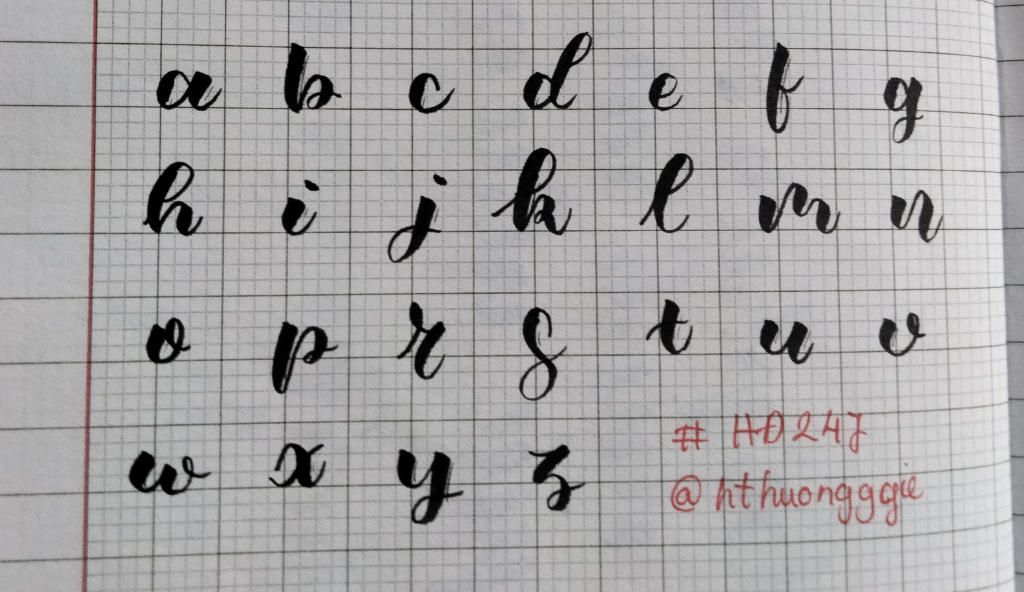 a b c d e f g
h i j k l m n
o p r s t u v
w x y z
# HD247
@hthuongggie